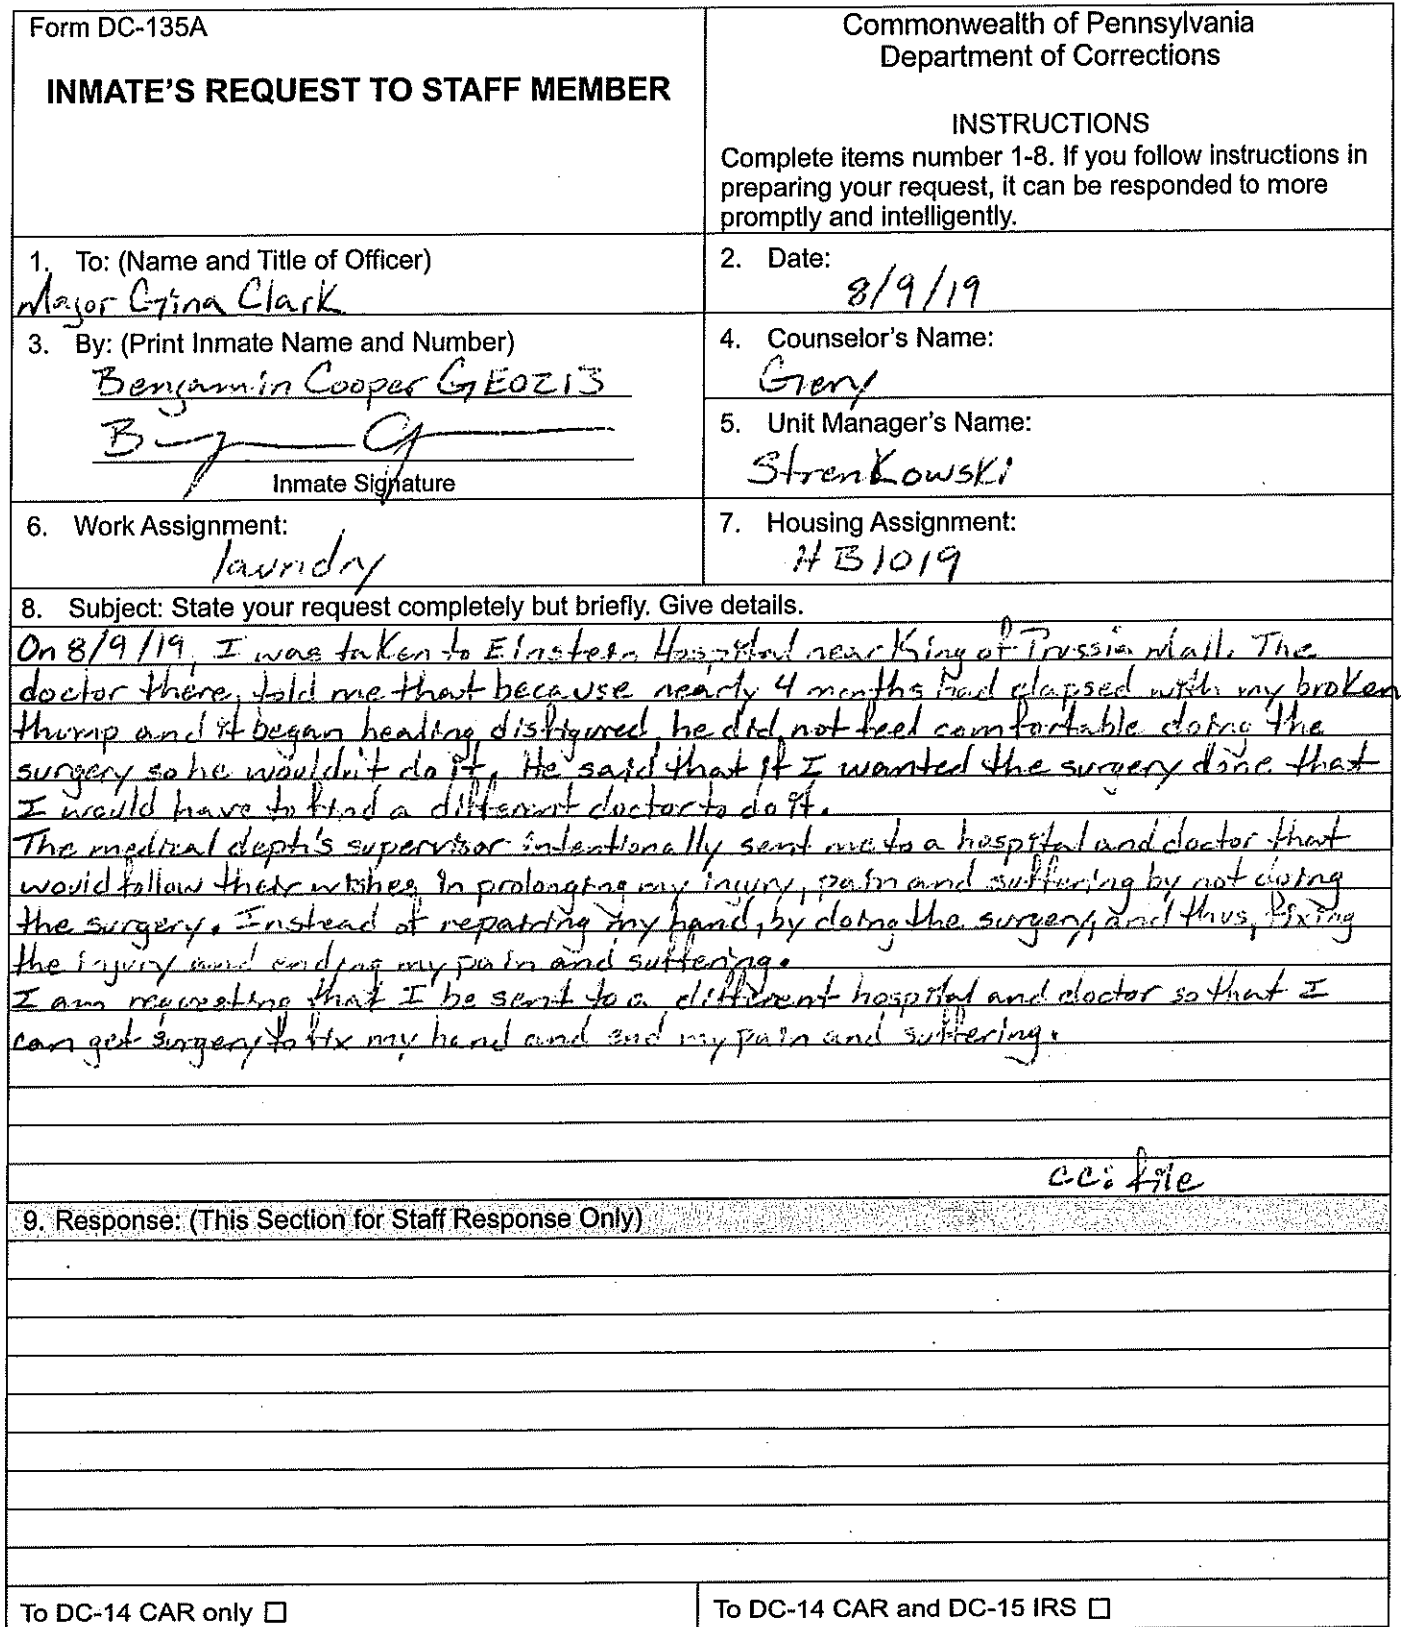 Form DC-135A
INMATE'S REQUEST TO STAFF MEMBER
Commonwealth of Pennsylvania
Department of Corrections
INSTRUCTIONS
Complete items number 1-8. If you follow instructions in
preparing your request, it can be responded to more
promptly and intelligently.
1. To: (Name and Title of Officer)
Major Gina Clark
2. Date:
8/9/19
3. By: (Print Inmate Name and Number)
Benjamin Cooper GE0213
Inmate Signature
4. Counselor's Name:
Gery
5. Unit Manager's Name:
Strenkowski
6. Work Assignment:
laundry
7. Housing Assignment:
HB1019
8. Subject: State your request completely but briefly. Give details.
On 8/9/19, I was taken to Einstein Hospital near King of Prussia Mall. The
doctor there, told me that because nearly 4 months had elapsed with my broken
thump and it began healing disfigured, he did not feel comfortable doing the
surgery so he wouldn't do it. He said that if I wanted the surgery done that
I would have to find a different doctor to do it.
The medical dept's supervisor intentionally sent me to a hospital and doctor that
would follow their wishes in prolonging my injury, pain and suffering by not doing
the surgery. Instead of repairing my hand, by doing the surgery, and thus, fixing
the injury and ending my pain and suffering.
I am requesting that I be sent to a different hospital and doctor so that I
can get surgery to fix my hand and end my pain and suffering.
cc: file
9. Response: (This Section for Staff Response Only)
To DC-14 CAR only ☐
To DC-14 CAR and DC-15 IRS ☐